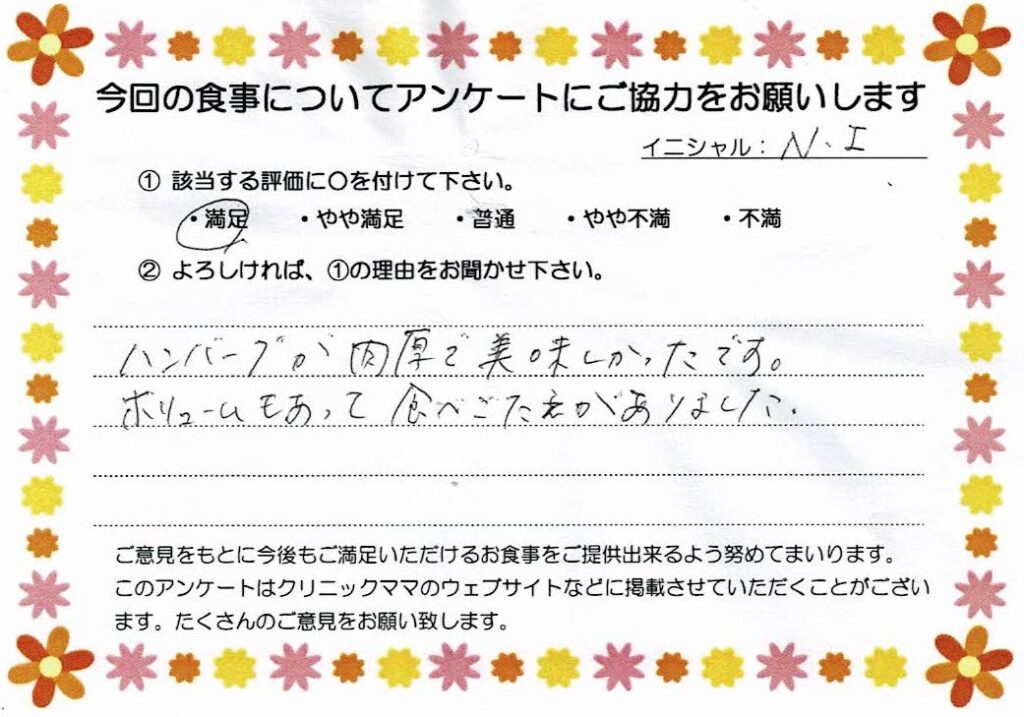 今回の食事についてアンケートにご協力をお願いします
イニシャル：N.I
① 該当する評価に〇を付けて下さい。
・満足 ・やや満足 ・普通 ・やや不満 ・不満
② よろしければ、①の理由をお聞かせ下さい。
ハンバーグが肉厚で美味しかったです。
ボリュームもあって食べごたえがありました。
ご意見をもとに今後もご満足いただけるお食事をご提供出来るよう努めてまいります。
このアンケートはクリニックママのウェブサイトなどに掲載させていただくことがござい
ます。たくさんのご意見をお願い致します。